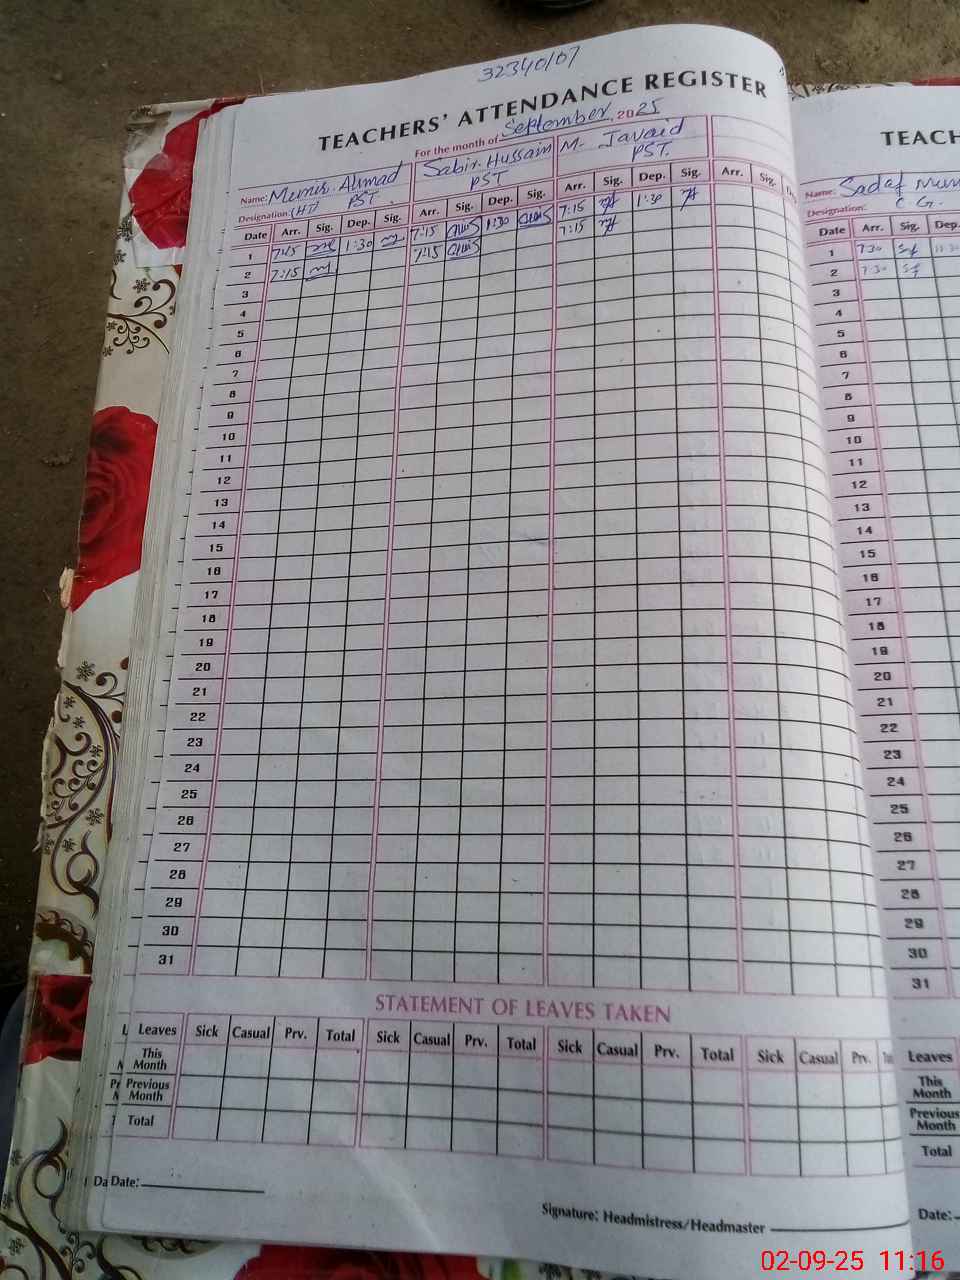 32340107
TEACHERS' ATTENDANCE REGISTER
For the month of September, 2025
Name: Ahmad Sabir Hussain M. Javaid
Designation: (HT) PST PST PST.
Date Arr. Sig. Dep. Sig. Arr. Sig. Dep. Sig. Arr. Sig. Dep. Sig. Arr. Sig.
1 7:15 1:30 7:15 1:30 7:15 1:30
2 7:15 7:15 7:15
3
4
5
6
7
8
9
10
11
12
13
14
15
16
17
18
19
20
21
22
23
24
25
26
27
28
29
30
31
STATEMENT OF LEAVES TAKEN
Leaves Sick Casual Prv. Total Sick Casual Prv. Total Sick Casual Prv. Total Sick Casual Prv.
This Month
Previous Month
Total
Date:
Signature: Headmistress/Headmaster
TEACH
Name: Sadaf
Designation: C G.
Date Arr. Sig. Dep.
1 7:30
2 7:30
3
4
5
6
7
8
9
10
11
12
13
14
15
16
17
18
19
20
21
22
23
24
25
26
27
28
29
30
31
Leaves
This Month
Previous Month
Total
Date:
02-09-25 11:16